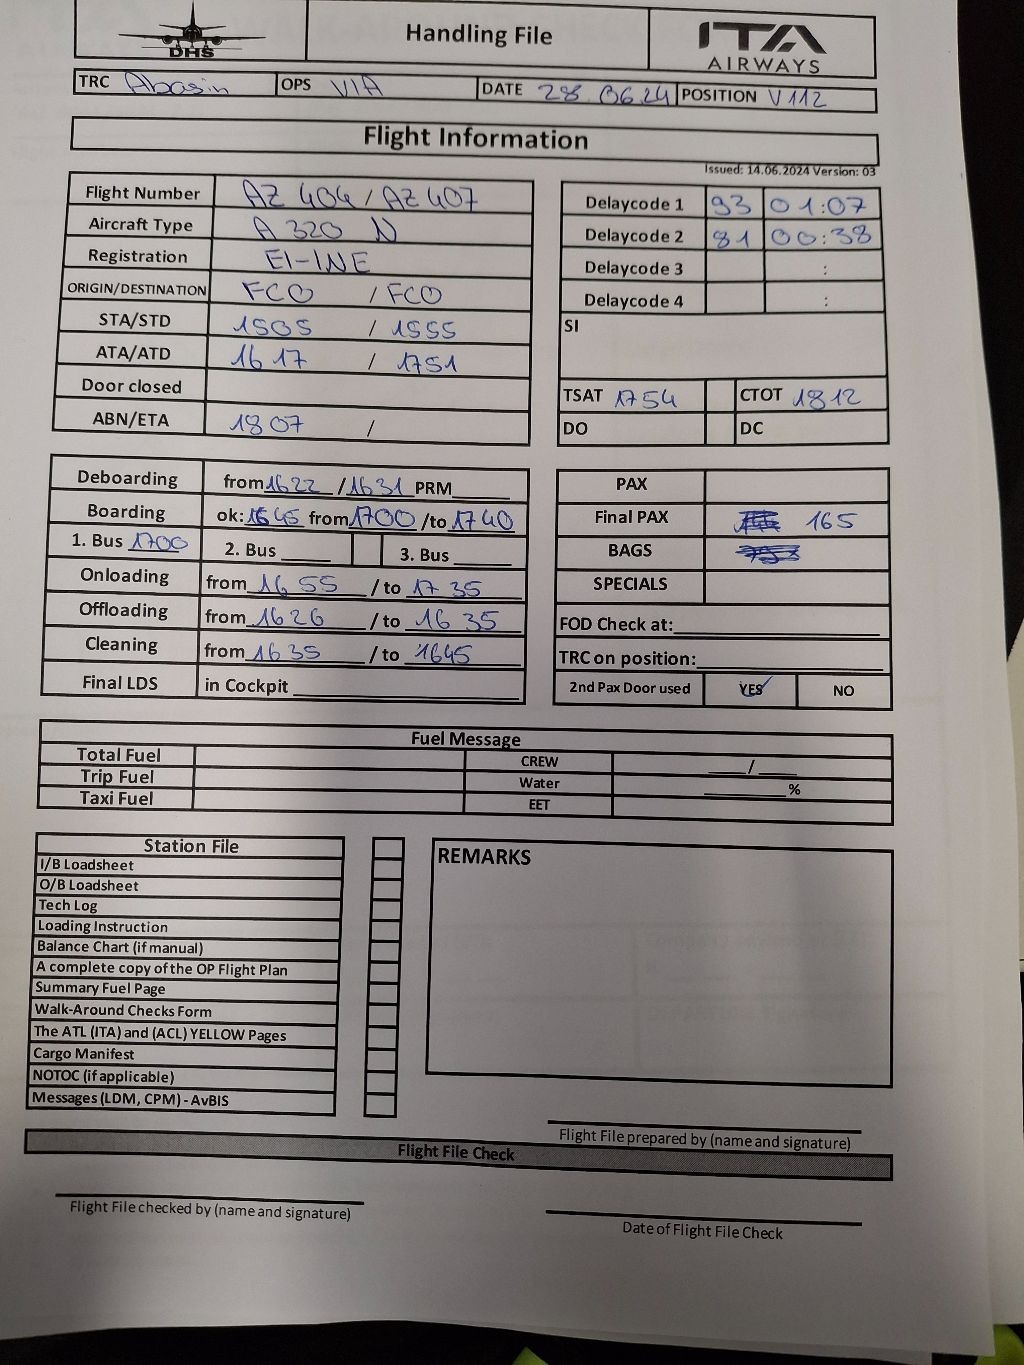 DHS
Handling File
ITA
AIRWAYS
TRC Abasin OPS VIA DATE 28.06.24 POSITION V112
Flight Information
Issued: 14.06.2024 Version: 03
Flight Number AZ 404 / AZ 407
Aircraft Type A 320 N
Registration EI-INE
ORIGIN/DESTINATION FCO / FCO
STA/STD 1505 / 1555
ATA/ATD 1617 / 1751
Door closed
ABN/ETA 1807 /
Delaycode 1 93 01:07
Delaycode 2 81 00:38
Delaycode 3 :
Delaycode 4 :
SI
TSAT 1754 CTOT 1812
DO DC
Deboarding from 1622 / 1631 PRM
Boarding ok: 1645 from 1700 / to 1740
1. Bus 1700 2. Bus 3. Bus
Onloading from 1655 / to 1735
Offloading from 1626 / to 1635
Cleaning from 1635 / to 1645
Final LDS in Cockpit
PAX
Final PAX 165
BAGS
SPECIALS
FOD Check at:
TRC on position:
2nd Pax Door used YES NO
Fuel Message
Total Fuel CREW /
Trip Fuel Water %
Taxi Fuel EET
Station File
I/B Loadsheet
O/B Loadsheet
Tech Log
Loading Instruction
Balance Chart (if manual)
A complete copy of the OP Flight Plan
Summary Fuel Page
Walk-Around Checks Form
The ATL (ITA) and (ACL) YELLOW Pages
Cargo Manifest
NOTOC (if applicable)
Messages (LDM, CPM) - AvBIS
REMARKS
Flight File prepared by (name and signature)
Flight File Check
Flight File checked by (name and signature)
Date of Flight File Check